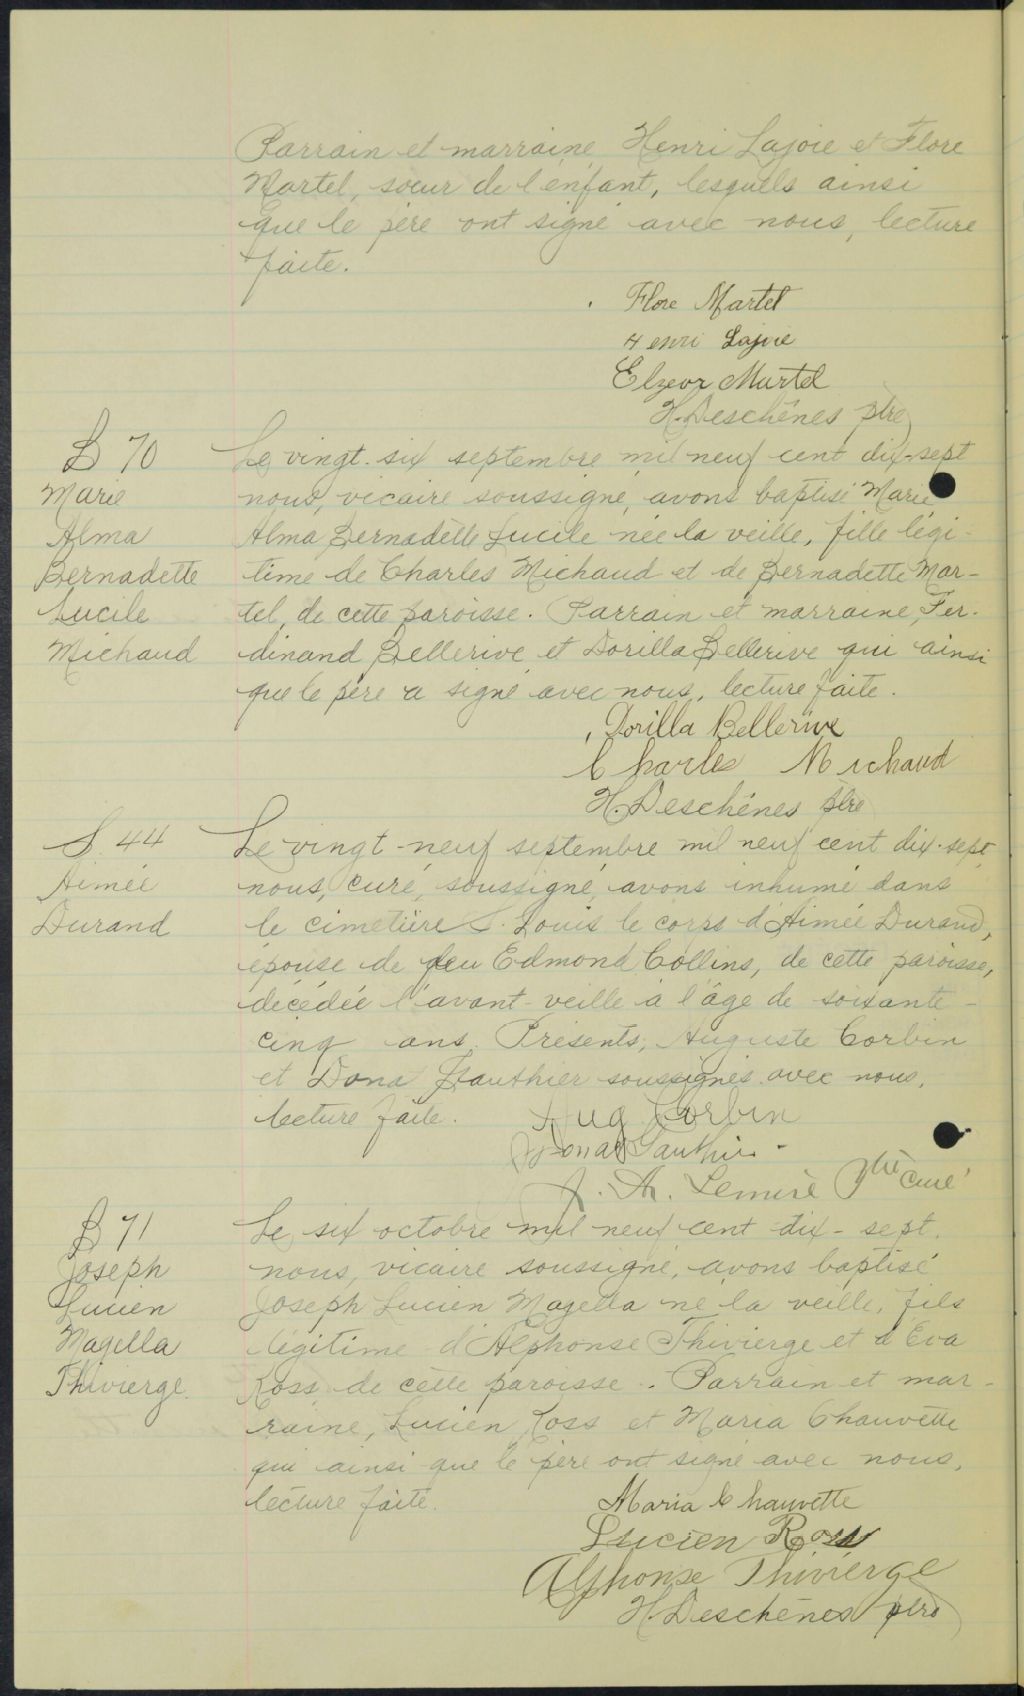 Parrain et marraine Henri Lajoie et Flore
Martel, soeur de l'enfant, lesquels ainsi
que le père ont signé avec nous, lecture
faite.
Flore Martel
Henri Lajoie
Elzeor Martel
H. Deschênes ptre
B 70
Marie
Alma
Bernadette
Lucile
Michaud
Le vingt-six septembre mil neuf cent dix-sept
nous, vicaire soussigné, avons baptisé Marie
Alma Bernadette Lucile née la veille, fille légi-
time de Charles Michaud et de Bernadette Mar-
tel, de cette paroisse. Parrain et marraine, Fer-
dinand Bellerive et Dorilla Bellerive qui ainsi
que le père a signé avec nous, lecture faite.
Dorilla Bellerive
Charles Michaud
H. Deschênes ptre
S. 44
Aimée
Durand
Le vingt-neuf septembre mil neuf cent dix-sept,
nous, curé, soussigné, avons inhumé dans
le cimetière S. Louis le corps d'Aimée Durand,
épouse de feu Edmond Collins, de cette paroisse,
décédée l'avant-veille à l'âge de soixante-
cinq ans. Présents, Auguste Corbin
et Dona Gauthier soussignés avec nous,
lecture faite.
Aug Corbin
Dona Gauthier
J. A. Lemire Ptre Curé
B 71
Joseph
Lucien
Magella
Thivierge
Le six octobre mil neuf cent dix-sept,
nous, vicaire soussigné, avons baptisé
Joseph Lucien Magella né la veille, fils
légitime d'Alphonse Thivierge et d'Eva
Ross de cette paroisse. Parrain et mar-
raine, Lucien Ross et Maria Chauvette
qui ainsi que le père ont signé avec nous,
lecture faite.
Maria Chauvette
Lucien Ross
Alphonse Thivierge
H. Deschênes ptre